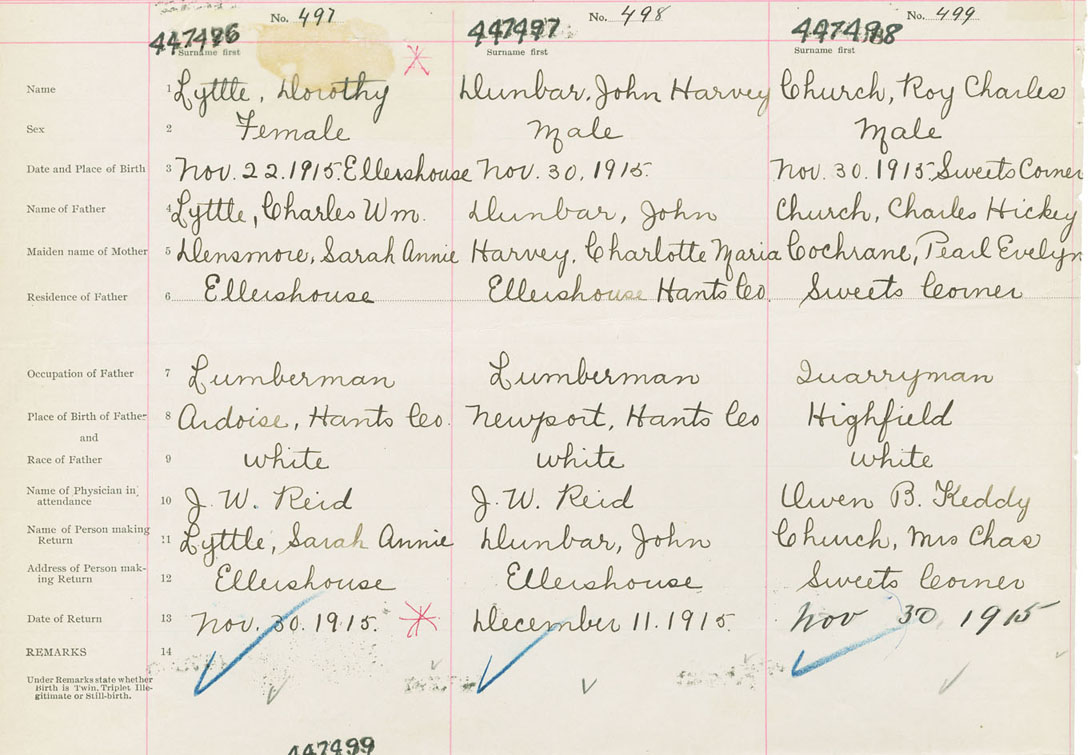 No. 497 No. 498 No. 499
447496 447497 447498
Surname first Surname first Surname first
Name 1 Lyttle, Dorothy Dunbar, John Harvey Church, Roy Charles
Sex 2 Female Male Male
Date and Place of Birth 3 Nov. 22.1915. Ellershouse Nov. 30, 1915. Nov. 30. 1915. Sweets Corner
Name of Father 4 Lyttle, Charles Wm. Dunbar, John Church, Charles Hickey
Maiden name of Mother 5 Densmore, Sarah Annie Harvey, Charlotte Maria Cochrane, Pearl Evelyn
Residence of Father 6 Ellershouse Ellershouse Hants Co. Sweets Corner
Occupation of Father 7 Lumberman Lumberman Quarryman
Place of Birth of Father 8 Ardoise, Hants Co. Newport, Hants Co Highfield
and
Race of Father 9 white white white
Name of Physician in
attendance 10 J. W. Reid J. W. Reid Owen B. Keddy
Name of Person making
Return 11 Lyttle, Sarah Annie Dunbar, John Church, Mrs Chas
Address of Person mak-
ing Return 12 Ellershouse Ellershouse Sweets Corner
Date of Return 13 Nov. 30. 1915. December 11. 1915. Nov 30, 1915
REMARKS 14
Under Remarks state whether
Birth is Twin, Triplet Ille-
gitimate or Still-birth.
447499